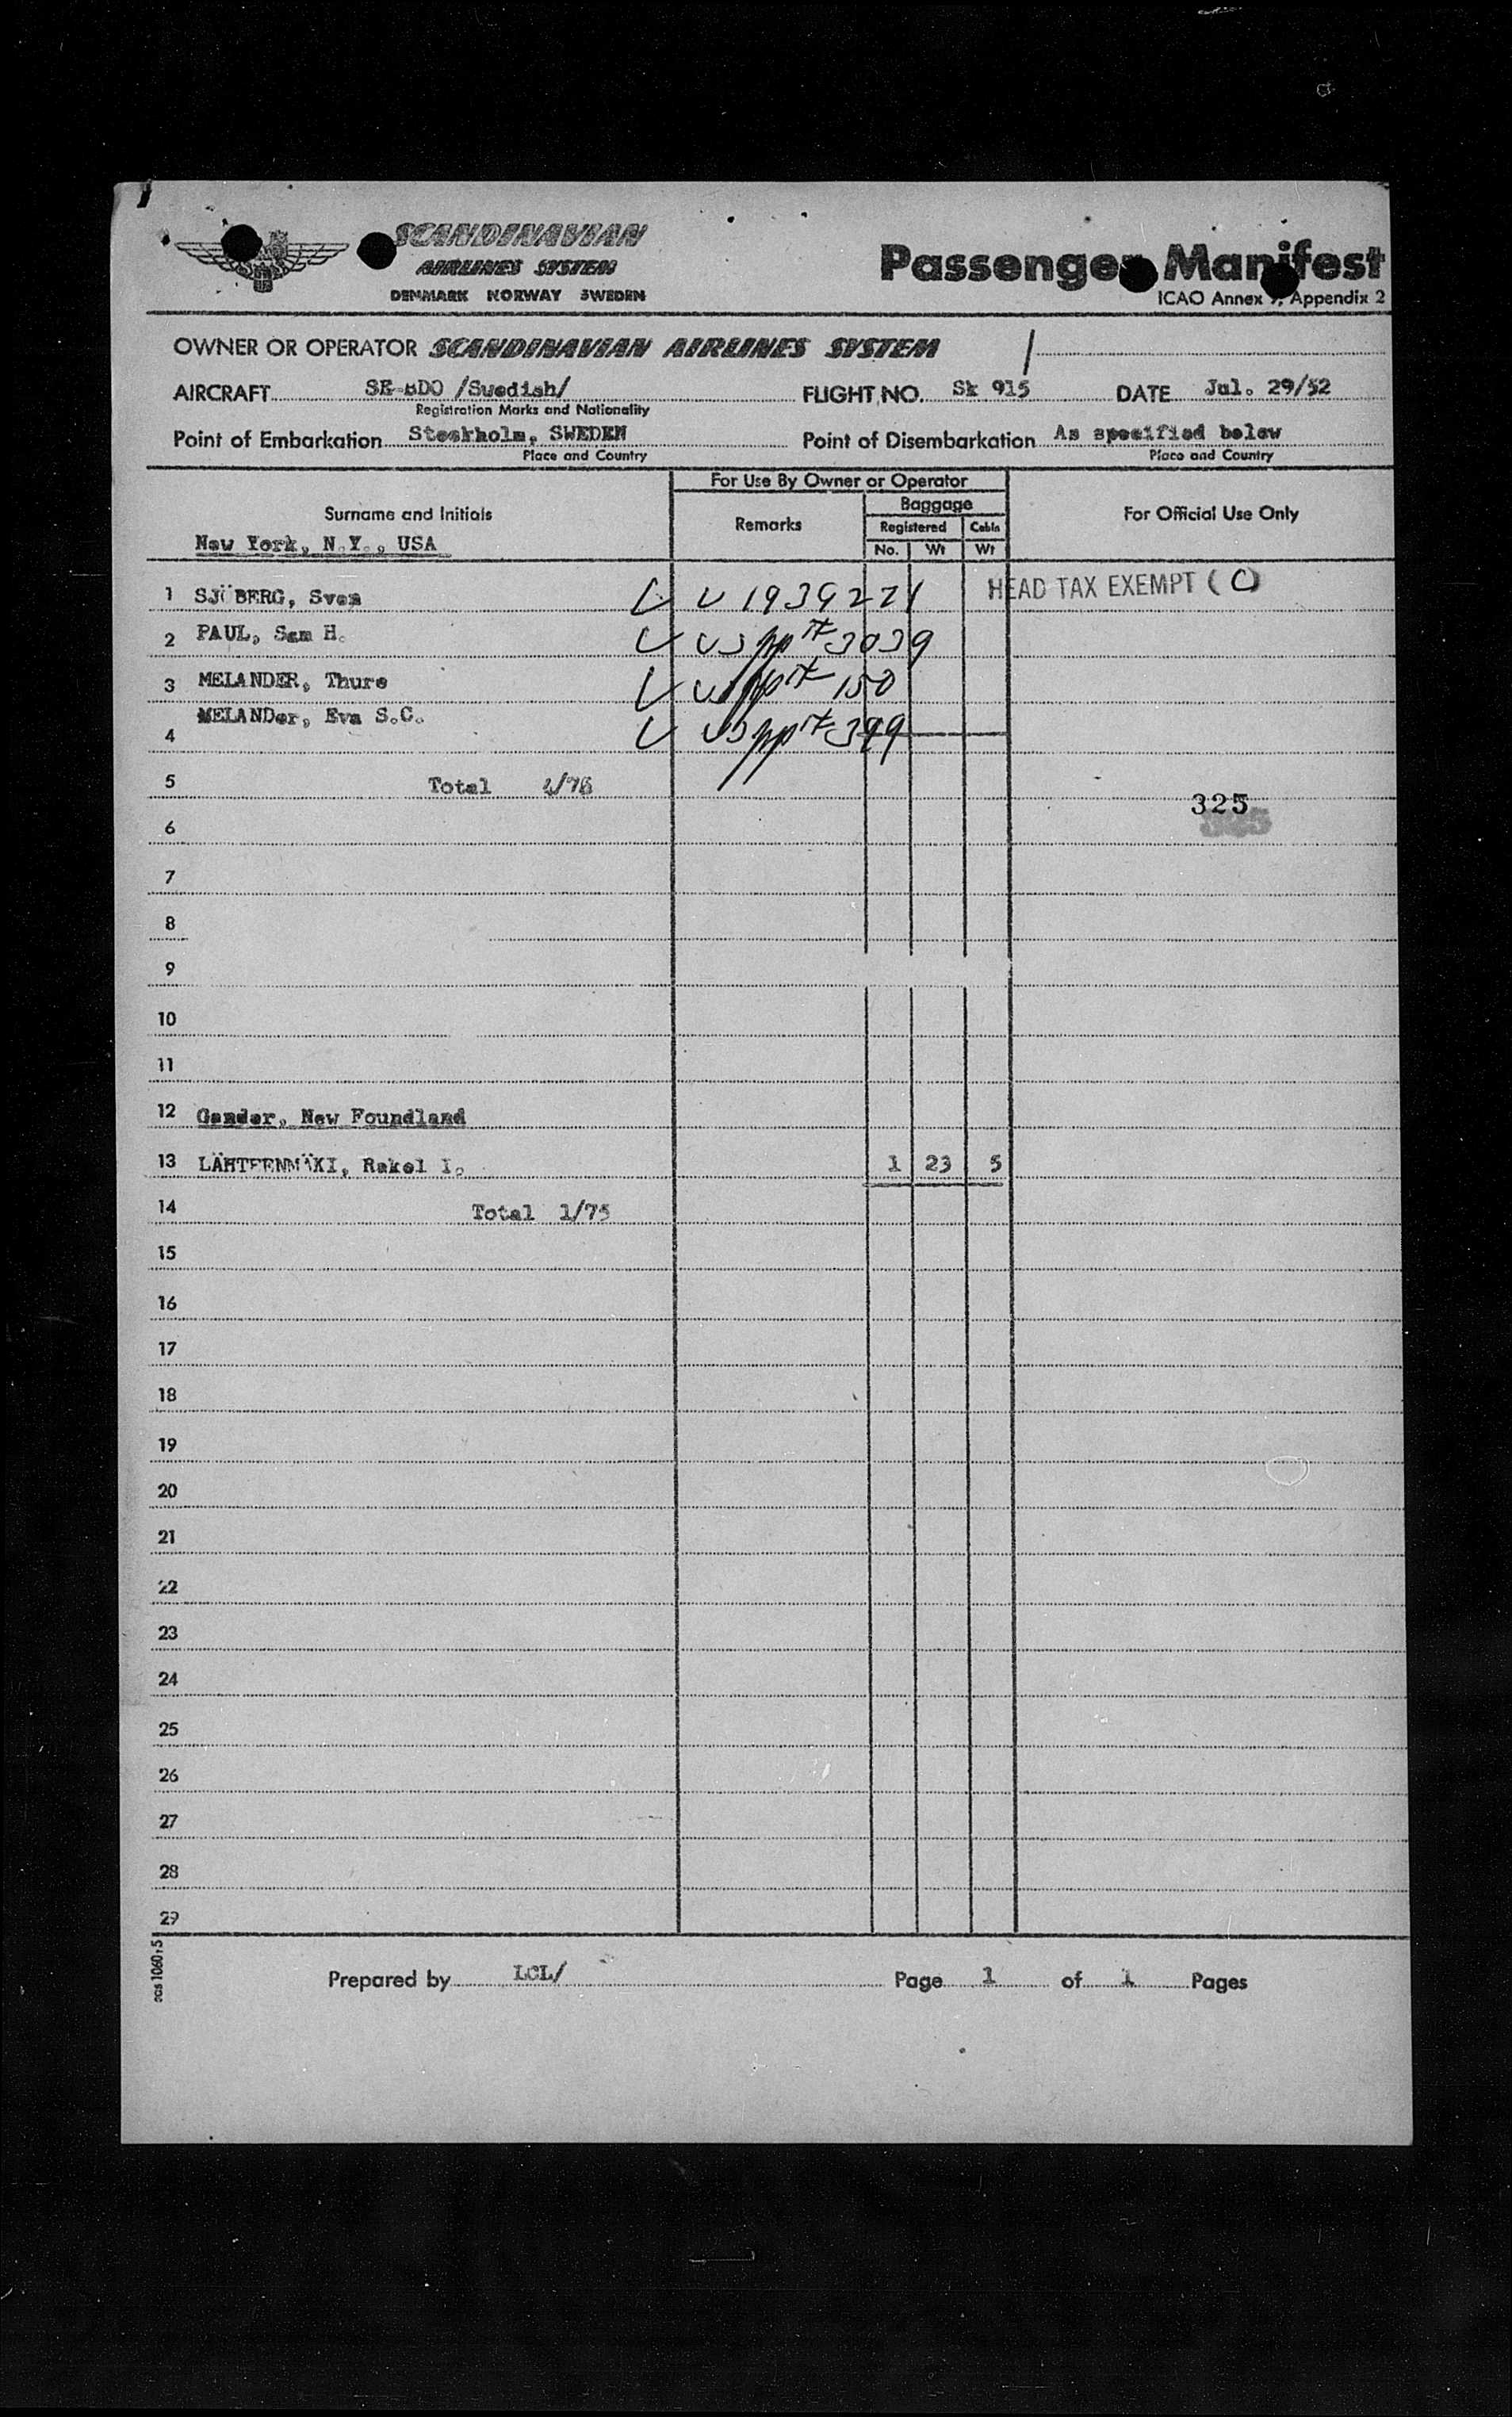 SCANDINAVIAN
AIRLINES SYSTEM
DENMARK NORWAY SWEDEN
Passenger Manifest
ICAO Annex 9, Appendix 2
OWNER OR OPERATOR SCANDINAVIAN AIRLINES SYSTEM
AIRCRAFT SE-BDO /Swedish/ FLIGHT NO. Sk 915 DATE Jul. 29/52
Registration Marks and Nationality
Point of Embarkation Stockholm, SWEDEN Point of Disembarkation As specified below
Place and Country Place and Country
For Use By Owner or Operator
Surname and Initials Remarks Baggage For Official Use Only
Registered Cabin
New York, N.Y., USA No. Wt Wt
1 SJÖBERG, Sven V 1939221 HEAD TAX EXEMPT (C)
2 PAUL, Sam H. US ppt 3039
3 MELANDER, Thure US ppt 150
4 MELANDer, Eva S.C. US ppt 399
5 Total
325
6
7
8
9
10
11
12 Gander, New Foundland
13 LÄHTEENMÄKI, Rakel I. 1 23 5
14 Total 1/75
15
16
17
18
19
20
21
22
23
24
25
26
27
28
29
sas 1060, 5
Prepared by LCL/ Page 1 of 1 Pages